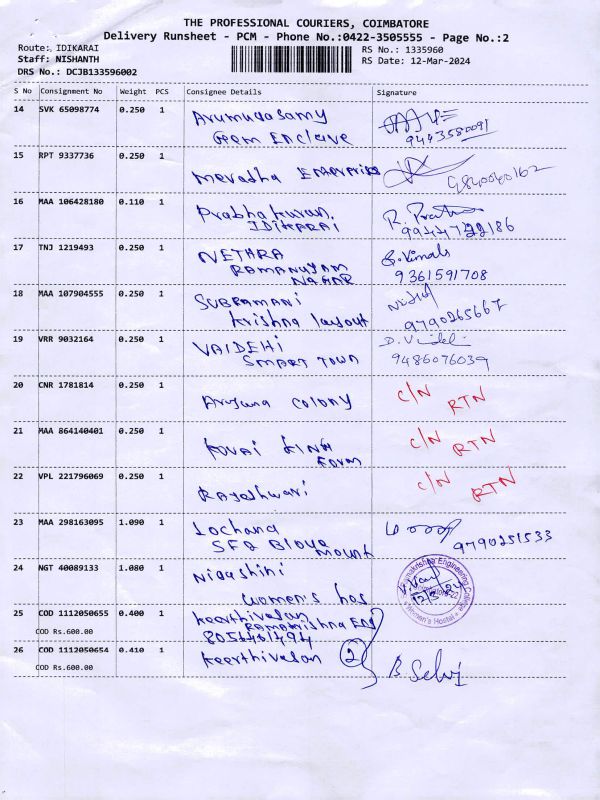 THE PROFESSIONAL COURIERS, COIMBATORE
Delivery Runsheet - PCM - Phone No.:0422-3505555 - Page No.:2
Route: IDIKARAI
RS No.: 1335960
Staff: NISHANTH
RS Date: 12-Mar-2024
DRS No.: DCJB133596002
S No Consignment No Weight PCS Consignee Details Signature
14 SVK 65098774 0.250 1 Arumugasamy
Geem Enclave 9443580091
15 RPT 9337736 0.250 1 Meradha Enterprises 9840040162
16 MAA 106428180 0.110 1 Prabhakaran.
IDIKARAI
17 TNJ 1219493 0.250 1 NETHRA
RAMANUJAM 9361591708
NAGAR
18 MAA 107904555 0.250 1 SUBRAMANI
Krishna layout 9790265667
19 VRR 9032164 0.250 1 VAIDEHI
SMART TOWN 9486076039
20 CNR 1781814 0.250 1 Arjuna COLONY C/N RTN
21 MAA 864140401 0.250 1 KOVAI KING C/N RTN
22 VPL 221796069 0.250 1 Rajeshwari C/N RTN
23 MAA 298163095 1.090 1 Lochana
SF2 mount 9790251533
24 NGT 40089133 1.080 1 Nigashini
women's hos
Engineering College
Women's Hostel
25 COD 1112050655 0.400 1 Keerthivasan
Ramakrishna Eng
COD Rs.600.00
26 COD 1112050654 0.410 1 Keerthivasan 2
B. Selvi
COD Rs.600.00